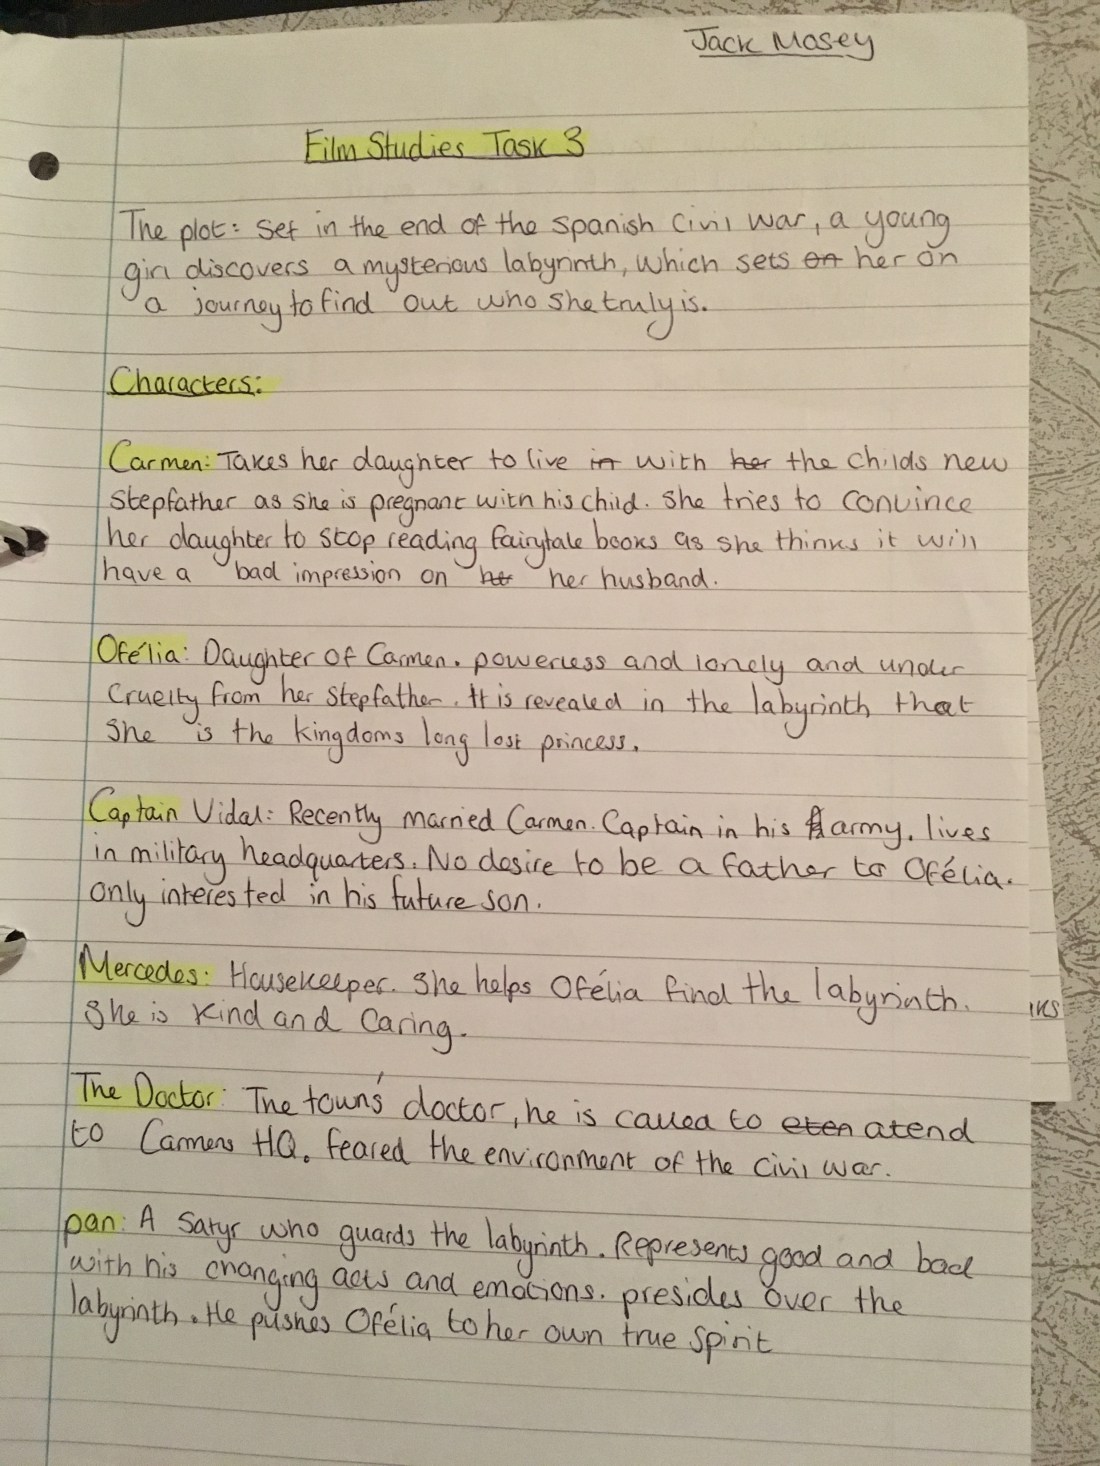 Jack Mosey
Film Studies Task 3
The plot: Set in the end of the Spanish Civil War, a young
girl discovers a mysterious labyrinth, which sets on her on
a journey to find out who she truly is.
Characters:
Carmen: Takes her daughter to live in with her the childs new
stepfather as she is pregnant with his child. She tries to convince
her daughter to stop reading fairytale books as she thinks it will
have a bad impression on her husband.
Ofélia: Daughter of Carmen. powerless and lonely and under
cruelty from her stepfather. It is revealed in the labyrinth that
she is the kingdoms long lost princess.
Captain Vidal: Recently married Carmen. Captain in his army. lives
in military headquarters. No desire to be a father to Ofélia.
only interested in his future son.
Mercedes: Housekeeper. She helps Ofélia find the labyrinth.
She is kind and caring.
The Doctor: The town's doctor, he is called to atend
to Carmens HQ. feared the environment of the civil war.
pan: A Satyr who guards the labyrinth. Represents good and bad
with his changing acts and emotions. presides over the
labyrinth. He pushes Ofélia to her own true spirit